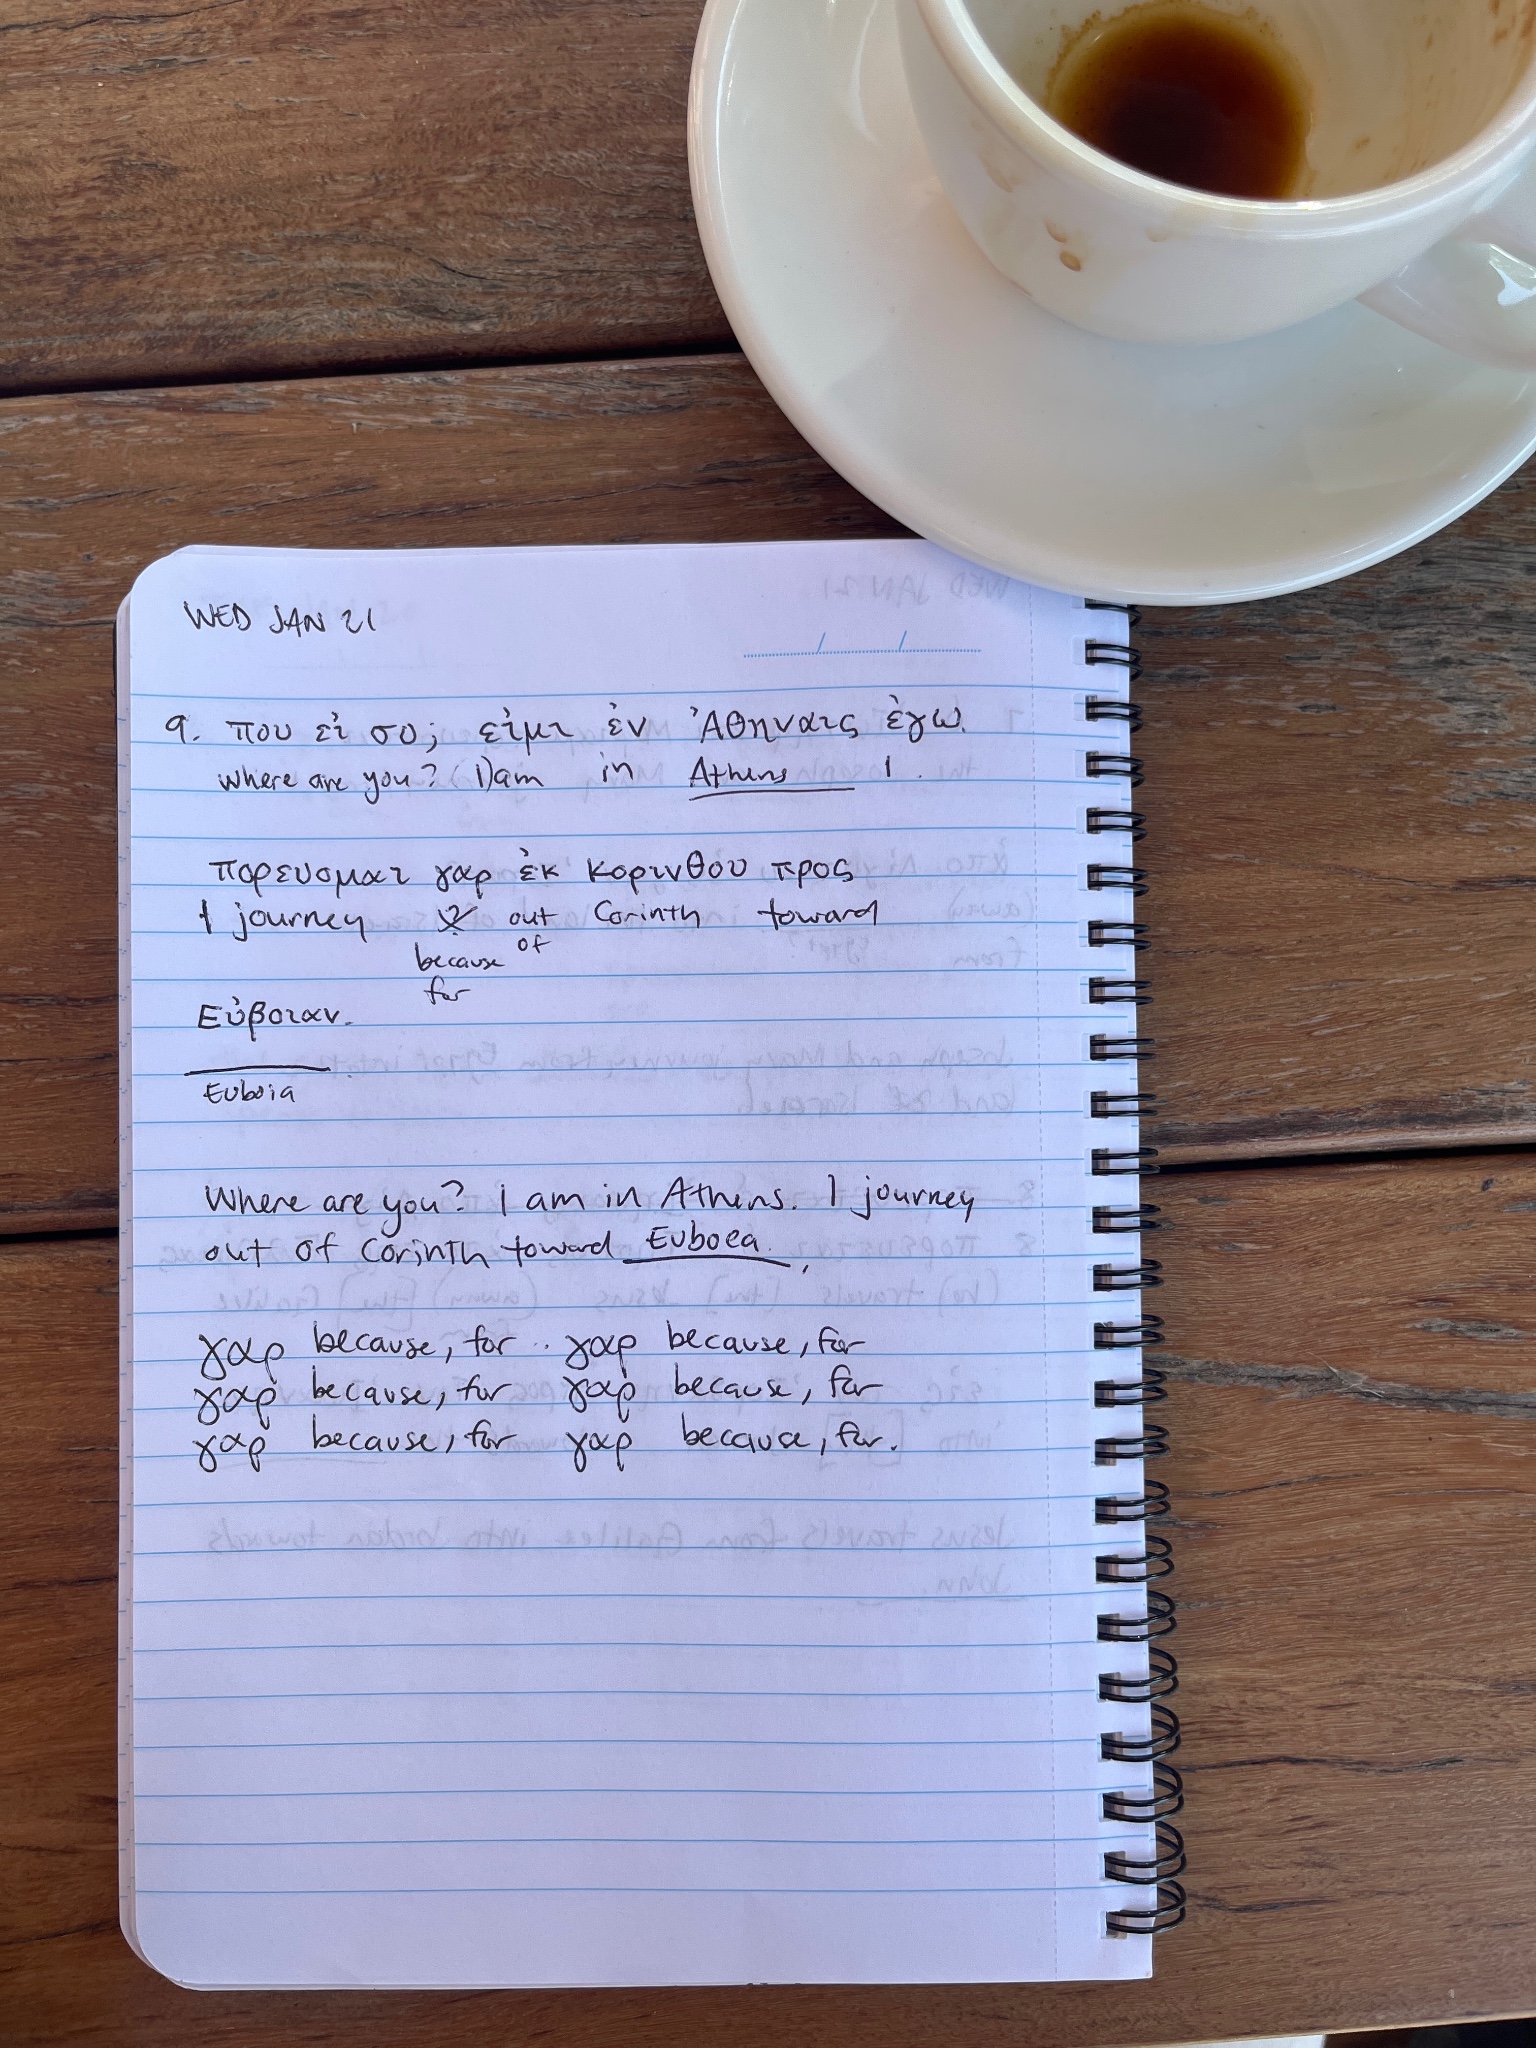 WED JAN 21
9. που εἰ συ; εἰμι ἐν Ἀθηναις ἐγω.
where are you? (I) am in Athens I.
πορευομαι γαρ ἐκ Κορινθου προς
I journey ? out Corinth toward
because of
for
Εὐβοιαν.
Euboia
Where are you? I am in Athens. I journey
out of Corinth toward Euboea.
γαρ because, for .. γαρ because, for
γαρ because, for γαρ because, for
γαρ because, for γαρ because, for.